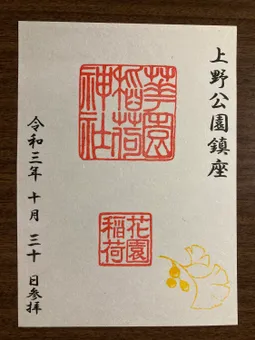 上野公園鎮座
華園稲荷神社
花園稲荷
令和三年 十月 三十 日参拝